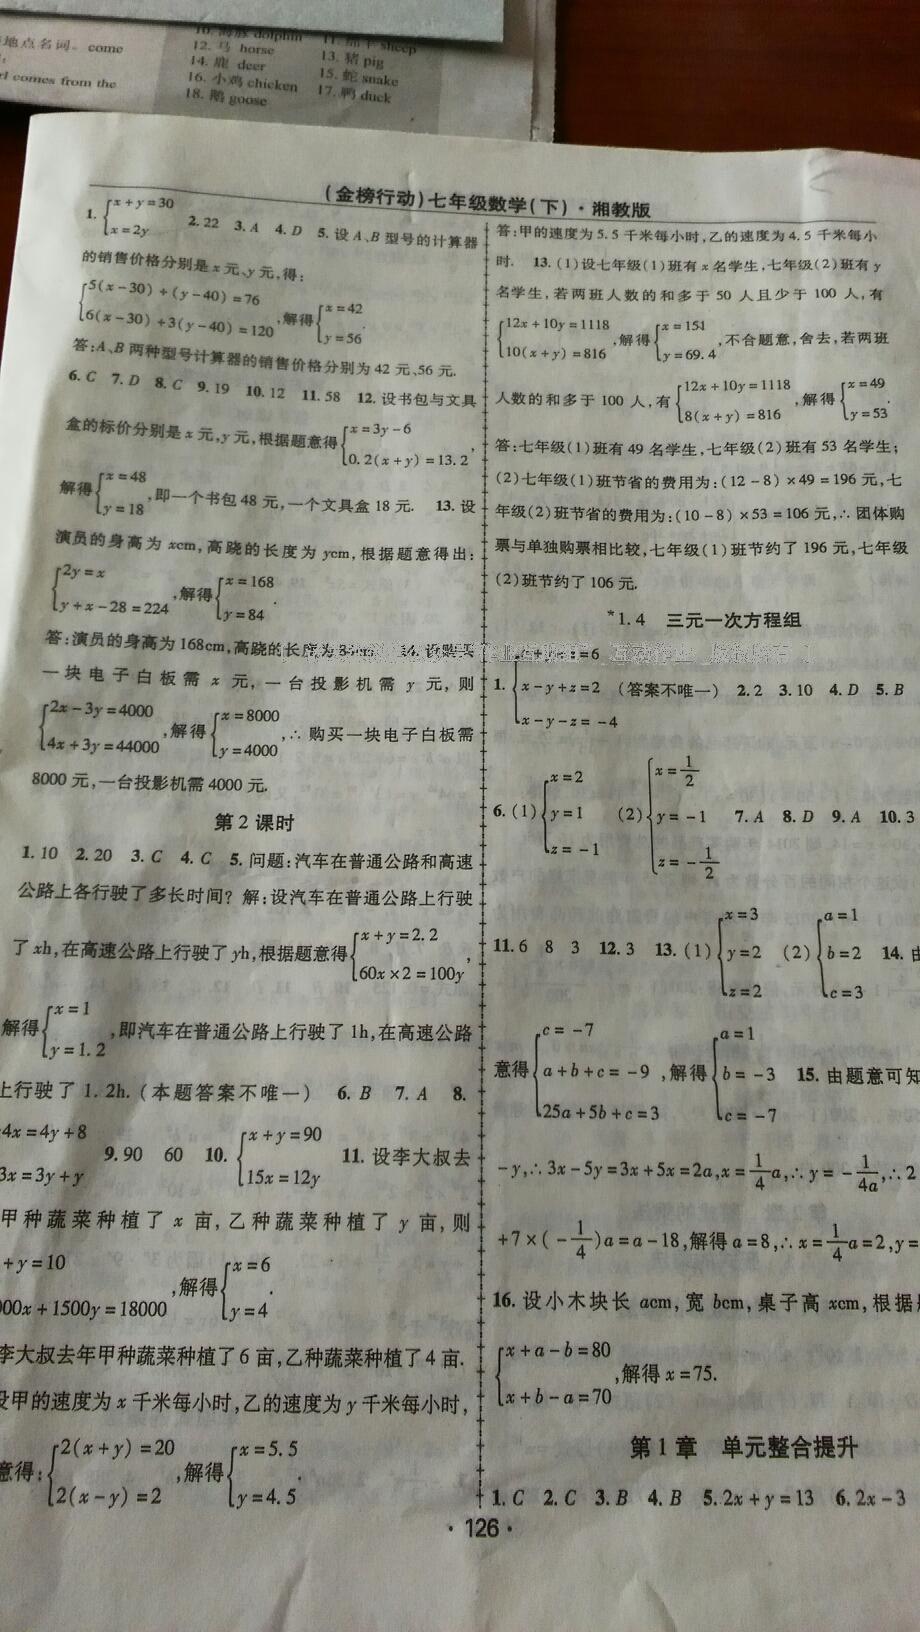 地点名词。come
rl comes from the
10. 海豚 dolphin
12. 马 horse
14. 鹿 deer
16. 小鸡 chicken
18. 鹅 goose
sheep
13. 猪 pig
15. 蛇 snake
17. 鸭 duck
(金榜行动)七年级数学(下)·湘教版
1. {x+y=30 x=2y 2. 22 3. A 4. D 5. 设A、B型号的计算器
的销售价格分别是x元、y元,得:
{5(x-30)+(y-40)=76 6(x-30)+3(y-40)=120 ,解得{x=42 y=56.
答:A、B两种型号计算器的销售价格分别为42元、56元.
6. C 7. D 8. C 9. 19 10. 12 11. 58 12. 设书包与文具
盒的标价分别是x元,y元,根据题意得{x=3y-6 0.2(x+y)=13.2,
解得{x=48 y=18,即一个书包48元,一个文具盒18元. 13. 设
演员的身高为xcm,高跷的长度为ycm,根据题意得出:
{2y=x y+x-28=224 ,解得{x=168 y=84.
答:演员的身高为168cm,高跷的长度为84cm. 14. 设购买
一块电子白板需x元,一台投影机需y元,则
{2x-3y=4000 4x+3y=44000 ,解得{x=8000 y=4000 ,∴购买一块电子白板需
8000元,一台投影机需4000元.
第2课时
1. 10 2. 20 3. C 4. C 5. 问题:汽车在普通公路和高速
公路上各行驶了多长时间?解:设汽车在普通公路上行驶
了xh,在高速公路上行驶了yh,根据题意得{x+y=2.2 60x×2=100y,
解得{x=1 y=1.2,即汽车在普通公路上行驶了1h,在高速公路
上行驶了1.2h.(本题答案不唯一) 6. B 7. A 8.
4x=4y+8 3x=3y+y 9. 90 60 10. {x+y=90 15x=12y 11. 设李大叔去
甲种蔬菜种植了x亩,乙种蔬菜种植了y亩,则
+y=10 000x+1500y=18000 ,解得{x=6 y=4.
李大叔去年甲种蔬菜种植了6亩,乙种蔬菜种植了4亩.
设甲的速度为x千米每小时,乙的速度为y千米每小时,
意得:{2(x+y)=20 2(x-y)=2 ,解得{x=5.5 y=4.5.
答:甲的速度为5.5千米每小时,乙的速度为4.5千米每小
时. 13. (1)设七年级(1)班有x名学生,七年级(2)班有y
名学生,若两班人数的和多于50人且少于100人,有
{12x+10y=1118 10(x+y)=816 ,解得{x=151 y=69.4,不合题意,舍去,若两班
人数的和多于100人,有{12x+10y=1118 8(x+y)=816 ,解得{x=49 y=53.
答:七年级(1)班有49名学生,七年级(2)班有53名学生;
(2)七年级(1)班节省的费用为:(12-8)×49=196元,七
年级(2)班节省的费用为:(10-8)×53=106元,∴团体购
票与单独购票相比较,七年级(1)班节约了196元,七年级
(2)班节约了106元.
*1.4 三元一次方程组
1. { =6 x-y+z=2 x-y-z=-4 (答案不唯一) 2. 2 3. 10 4. D 5. B
6. (1){x=2 y=1 z=-1 (2){x=1/2 y=-1 z=-1/2 7. A 8. D 9. A 10. 3
11. 6 8 3 12. 3 13. (1){x=3 y=2 z=2 (2){a=1 b=2 c=3 14. 由
意得{c=-7 a+b+c=-9 25a+5b+c=3 ,解得{a=1 b=-3 c=-7 15. 由题意可知
-y,∴3x-5y=3x+5x=2a,x=1/4 a,∴y=-1/4a,∴2
+7×(-1/4)a=a-18,解得a=8,∴x=1/4 a=2,y=
16. 设小木块长acm,宽bcm,桌子高xcm,根据
{x+a-b=80 x+b-a=70 ,解得x=75.
第1章 单元整合提升
1. C 2. C 3. B 4. B 5. 2x+y=13 6. 2x-3
·126·